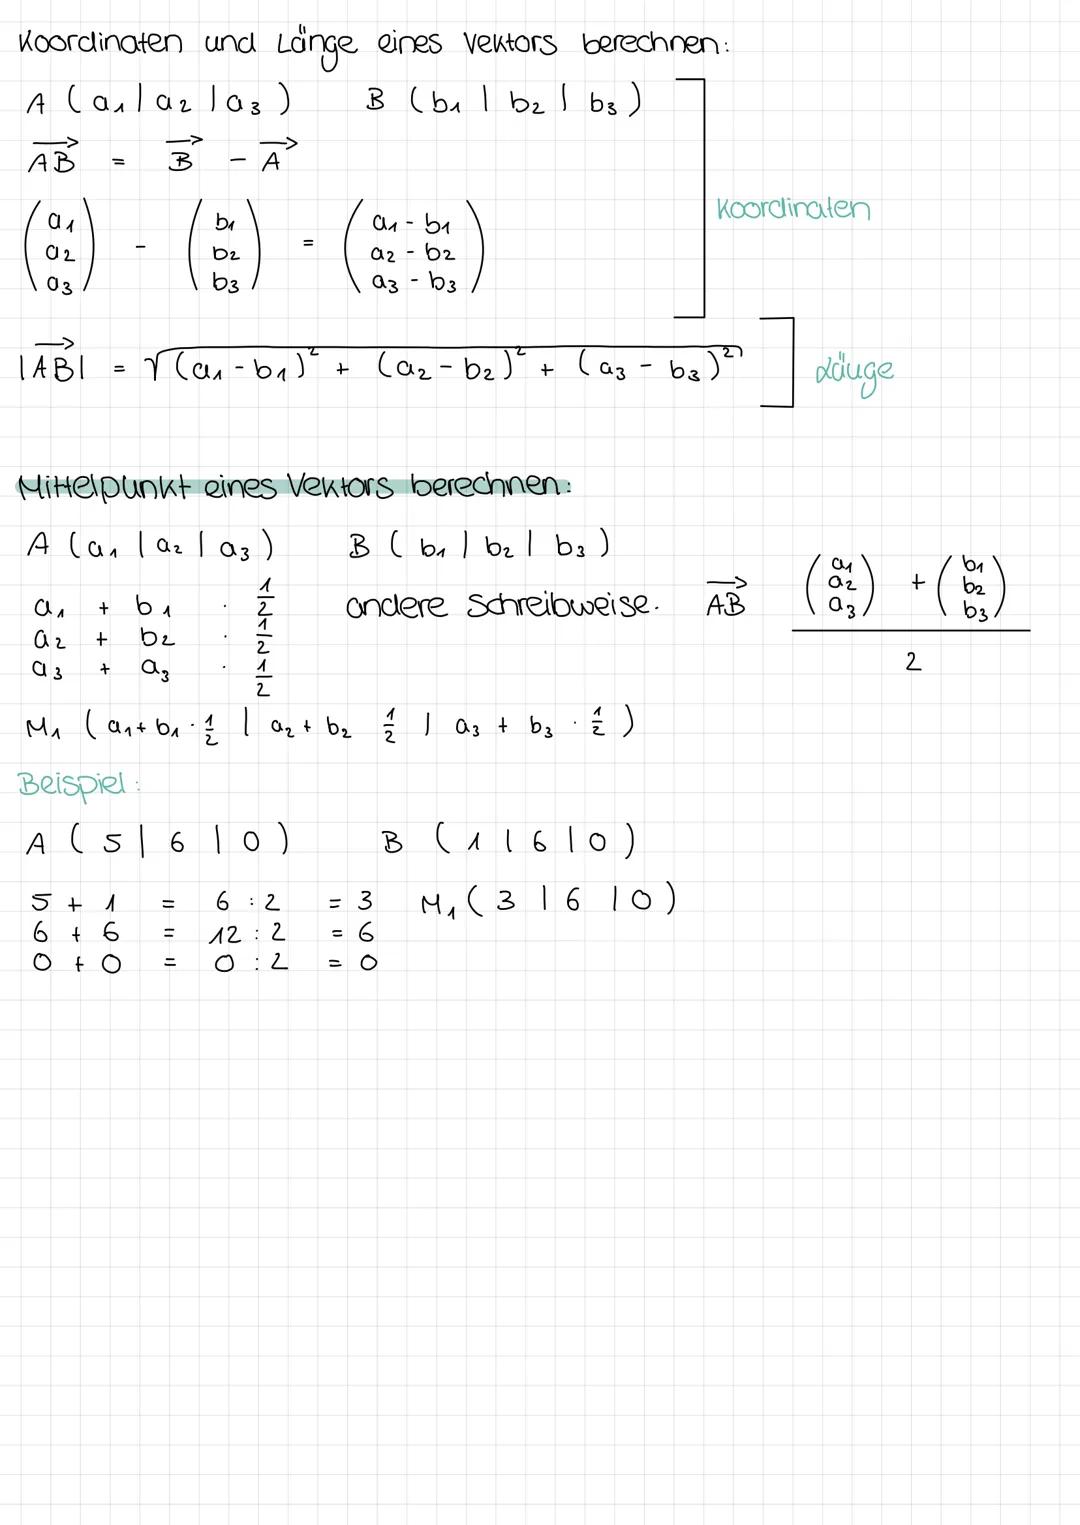 Koordinaten und Länge eines Vektors berechnen:
A (a₁ | a₂ | a₃)   B (b₁ | b₂ | b₃)
A⃗B⃗ = B⃗ - A⃗
(a₁ a₂ a₃) - (b₁ b₂ b₃) = (a₁ - b₁ a₂ - b₂ a₃ - b₃)
Koordinaten
|A⃗B⃗| = √((a₁ - b₁)² + (a₂ - b₂)² + (a₃ - b₃)²)
Länge
Mittelpunkt eines Vektors berechnen:
A (a₁ | a₂ | a₃)   B (b₁ | b₂ | b₃)
a₁ + b₁ · 1/2
a₂ + b₂ · 1/2
a₃ + a₃ · 1/2
andere Schreibweise. A⃗B⃗ ((a₁ a₂ a₃) + (b₁ b₂ b₃)) / 2
M₁ (a₁ + b₁ · 1/2 | a₂ + b₂ 1/2 | a₃ + b₃ · 1/2)
Beispiel:
A (5 | 6 | 0)   B (1 | 6 | 0)
5 + 1 = 6 : 2 = 3   M₁ (3 | 6 | 0)
6 + 6 = 12 : 2 = 6
0 + 0 = 0 : 2 = 0